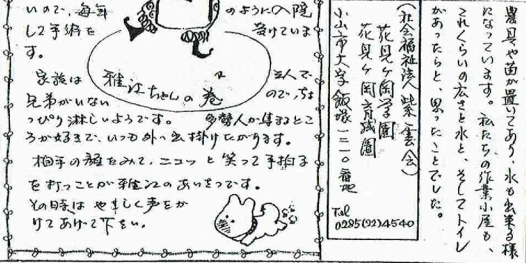 農具や苗が置いてあり、水も出来る様
になっています。私たちの作業小屋も、
これくらいの広さと水と、そしてトイレ
があったらと、思ったことでした。
(社会福祉法人 紫雲会)
花見ヶ岡学園
花見ヶ岡育成園
小山市大字飯塚一二一〇番地
Tel
0285(22)4540
いので、毎年 のように入院
して手術を 受けていま
す。
雅江ちゃんの巻
家族は 2人で
兄弟がいない ので、ちょ
っぴり淋しいようです。 多勢人が集るとこ
ろが好きで、いつも外へ出掛けたがります。
相手の顔をみて、ニコッと笑って手拍子
を打つことが雅江のあいさつです。
その時は やさしく声をか
けてあげて下さい。